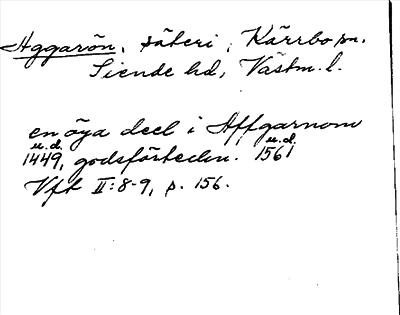 Aggarön, säteri, Kärrbo sn.
Siende hd, Västm. l.
en öya deel i Affgarnom
u.d. u.d.
1449, godsförteckn. 1561
Vft II:8-9, p. 156.